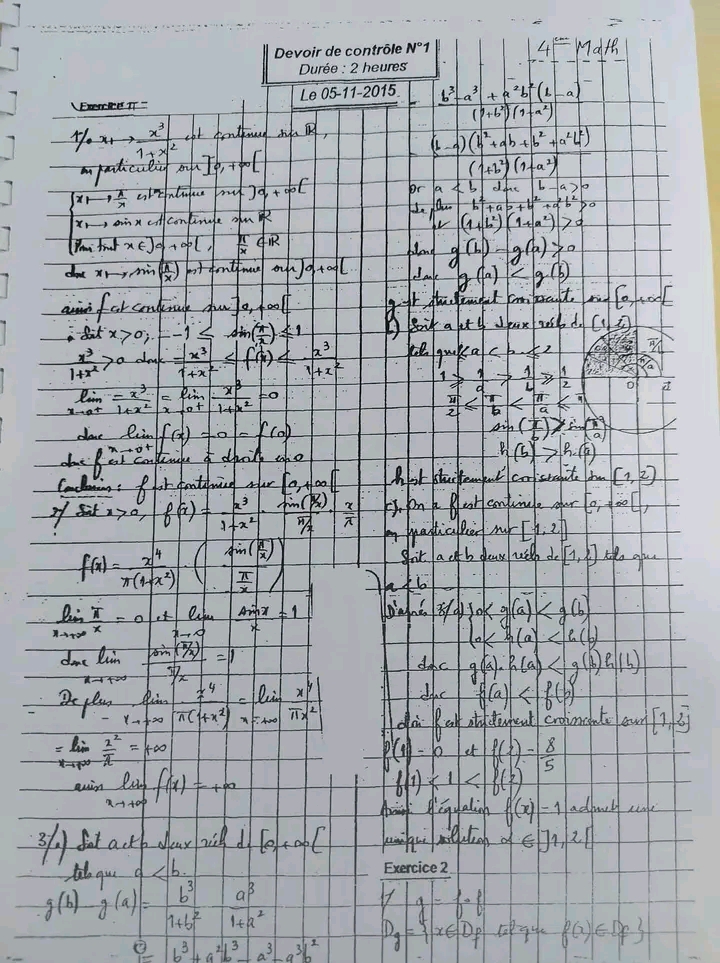 Devoir de contrôle N°1
Durée : 2 heures
Le 05-11-2015
4 ème Math
Exercice 1 :
1/ a) x ↦ x³/(1+x²) est continue sur ℝ,
en particulier sur ]0,+∞[
x ↦ π/x est continue sur ]0,+∞[
x ↦ sin x est continue sur ℝ
Pour tout x ∈ ]0,+∞[, π/x ∈ ℝ
donc x ↦ sin(π/x) est continue sur ]0,+∞[
ainsi f est continue sur ]0,+∞[
• Soit x > 0 ; -1 ≤ sin(π/x) ≤ 1
x³/(1+x²) > 0 donc -x³/(1+x²) ≤ f(x) ≤ x³/(1+x²)
lim x→0⁺ -x³/(1+x²) = lim x→0⁺ x³/(1+x²) = 0
donc lim x→0⁺ f(x) = 0 = f(0)
donc f est continue à droite en 0
Conclusion : f est continue sur [0,+∞[
2/ Soit x > 0, f(x) = x³/(1+x²) · sin(π/x)/(π/x) · π/x
f(x) = x⁴/(π(1+x²)) · (sin(π/x)/(π/x))
lim x→+∞ π/x = 0 et lim x→0 sin x/x = 1
donc lim x→+∞ sin(π/x)/(π/x) = 1
De plus lim x→+∞ x⁴/(π(1+x²)) = lim x→+∞ x⁴/(πx²)
= lim x→+∞ x²/π = +∞
ainsi lim x→+∞ f(x) = +∞
3/a) Soit a et b deux réels de [0,+∞[
tels que a < b.
g(b) - g(a) = b³/(1+b²) - a³/(1+a²)
= b³ + a²b³ - a³ - a³b²
b³ - a³ + a²b²(b - a)
(1+b²)(1+a²)
(b-a)(b² + ab + b² + a²b²)
(1+b²)(1+a²)
Or a < b donc b - a > 0
de plus b² + ab + b² + a²b² > 0
et (1+b²)(1+a²) > 0
donc g(b) - g(a) > 0
donc g(a) < g(b)
g est strictement croissante sur [0,+∞[
Soit a et b deux réels de [1,2]
tels que 1 ≤ a < b ≤ 2
1 ≥ 1/a > 1/b ≥ 1/2
π/2 ≤ π/b < π/a ≤ π
sin(π/b) > sin(π/a)
h(b) > h(a)
h est strictement croissante sur [1,2]
c). On a f est continue sur [0,+∞[,
en particulier sur [1,2]
Soit a et b deux réels de [1,2] tels que
a < b
D'après 3/a) 0 < g(a) < g(b)
0 < h(a) < h(b)
donc g(a)·h(a) < g(b)h(b)
donc f(a) < f(b)
d'où f est strictement croissante sur [1,2]
f(1) = 0 et f(2) = 8/5
f(1) < 1 < f(2)
Ainsi l'équation f(x) = 1 admet une
unique solution α ∈ ]1,2[
Exercice 2
1/ g = f∘f
Dg = { x ∈ Df tel que f(x) ∈ Df }